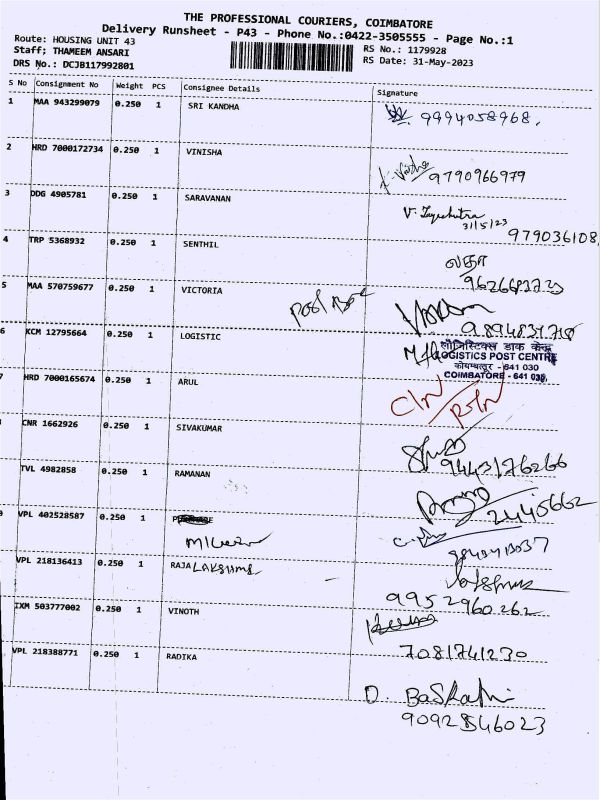 THE PROFESSIONAL COURIERS, COIMBATORE
Delivery Runsheet - P43 - Phone No.:0422-3505555 - Page No.:1
Route: HOUSING UNIT 43
Staff; THAMEEM ANSARI
DRS No.: DCJB117992801
RS No.: 1179928
RS Date: 31-May-2023
S No Consignment No Weight PCS Consignee Details Signature
1 MAA 943299079 0.250 1 SRI KANDHA 9994058968.
2 HRD 7000172734 0.250 1 VINISHA 9790966979
3 DDG 4905781 0.250 1 SARAVANAN V.
31/5/23
979036108
4 TRP 5368932 0.250 1 SENTHIL லதா
5 MAA 570759677 0.250 1 VICTORIA
6 KCM 12795664 1 LOGISTIC
लॉजिस्टिक्स डाक केन्द्र
LOGISTICS POST CENTRE
कोयम्बतूर - 641 030
COIMBATORE - 641 030.
7 HRD 7000165674 0.250 1 ARUL
CNR 1662926 0.250 1 SIVAKUMAR
9443176266
TVL 4982858 0.250 1 RAMANAN
2445662
VPL 402528587 0.250 1
VPL 218136413 0.250 1 RAJA LAKSHMI
9952960262
IXM 503777002 0.250 1 VINOTH
7081741230
VPL 218388771 0.250 1 RADIKA
D.
9092846023